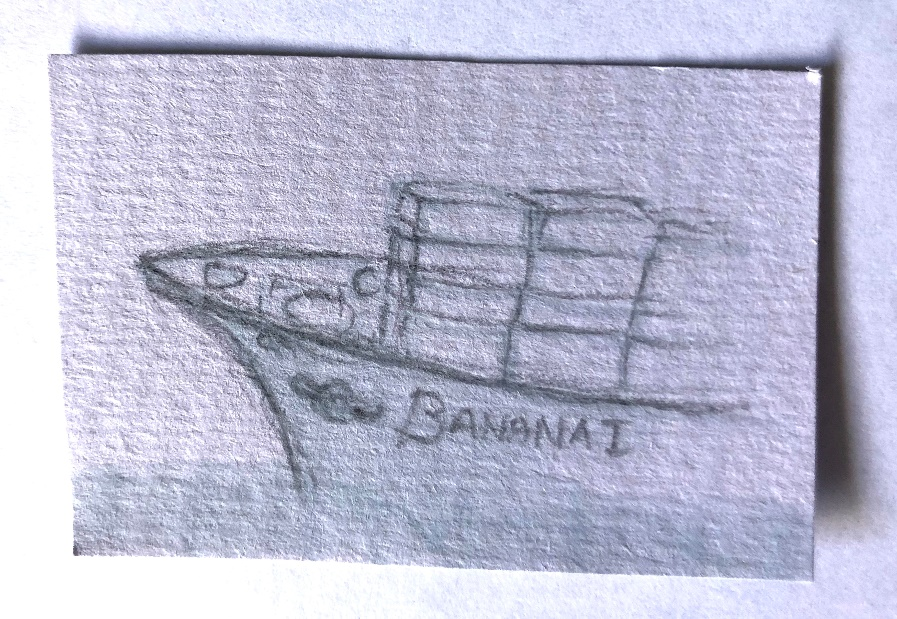 BANANA I